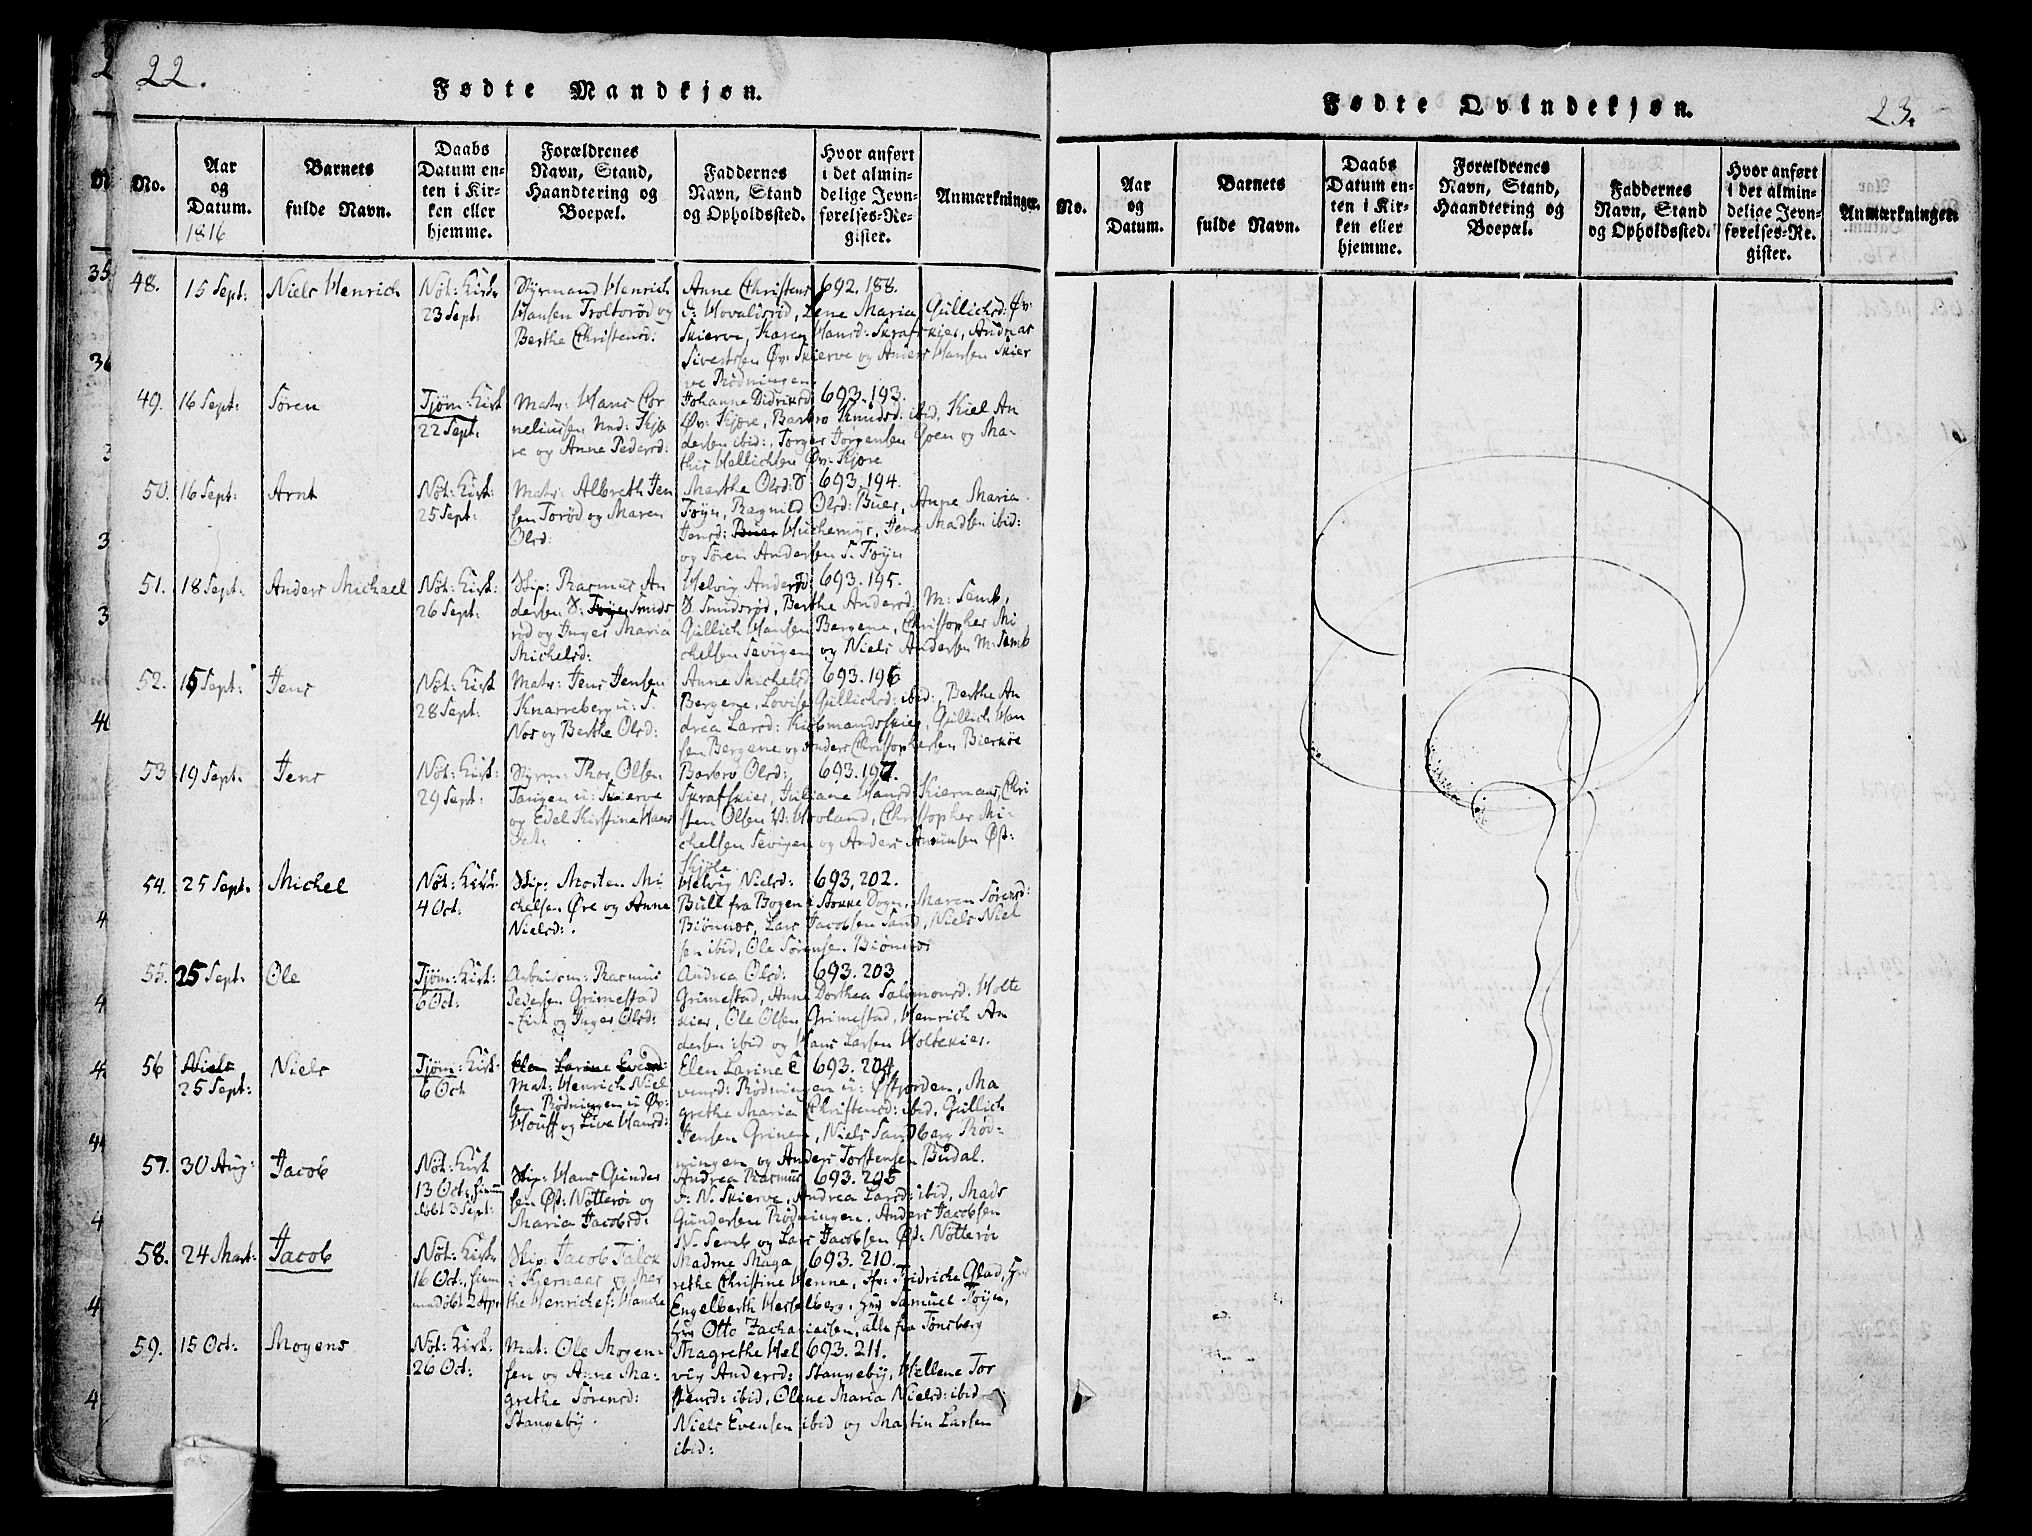 22.
Fødte Mandkjøn.
No.
Aar
og
Datum.
1816
Barnets
fulde Navn.
Daabs
Datum en-
ten i Kir-
ken eller
hjemme.
Forældrenes
Navn, Stand,
Haandtering og
Boepæl.
Faddernes
Navn, Stand
og Opholdssted.
Hvor anført
i det almin-
delige Jevn-
førelses-Re-
gister.
Anmærkninger.
48.
15 Sept:
Niels Henrich
Nøt: Kirke
23 Sept:
Styrmand Henrich
Hansen Troltorød og
Berthe Christensd:
Anne Christens 692.188.
d: Hovalisrød, Lene Maria Gullichsd: Øv:
Skierve, Karen Hansd: Skrafskier, Andreas
Sivertsen Øv: Skierve og Anders Hansen Skier
ve Rødningen
49.
16 Sept:
Søren
Tjøm: Kirk
22 Sept:
Matr: Hans Cor
neliussen Nnd: Kjø
re og Anne Pedersd:
Johanne Didriksd 693.193.
Øv: Kjøre, Barbro Knudsd: ibid, Kiel An
dersen ibid:, Torger Jørgensen Goen og Ma-
this Hellichsen Øv: Kjøre
50.
16 Sept:
Arnt
Nøt: Kirk:
25 Sept:
Matr: Albreth Jen
sen Torød og Maren
Olsd:
Marthe Olsd: S 693.194.
Føyn, Ragnild Olsd: Buer, Anne Maria
Jensd: Buer Huchemyr, Jens Madsen ibid:
og Søren Andersen S. Føyn
51.
18 Sept:
Anders Michael
Nøt: Kirk:
26 Sept:
Skip: Rasmus An
dersen S: Føyn Smids
rød og Inger Maria
Michelsd:
Helvig Andersd: 693.195.
S Smidsrød, Berthe Andersd: M: Semb,
Gullich Hansen Bergene, Christopher Mi
chelsen Sevigen og Niels Andersen M: Semb
52.
15 Sept:
Jens
Nøt: Kirk
28 Sept:
Matr: Jens Jensen
Knarreberg u: S.
Nos og Berthe Olsd:
Anne Michelsd 693.196
Bergene, Lovise Gullichsd: ibid:, Berthe An
drea Larsd: Kiøbmandsskier, Gullich Han
sen Bergene og Anders Christophersen Bierkøe
53
19 Sept:
Jens
Nøt: Kirk:
29 Sept:
Styrm: Thor Olsen
Tangen u: Skierve
og Edel Kirstine Hans
dat:
Barbro Olsd: 693.197.
Skrafskier, Juliane Hansd Kiernaas, Chri
sten Olsen V: Hovland, Christopher Mi-
chelsen Sevigen og Anders Amunsen Øst:
Kjøle
54.
25 Sept:
Michel
Nøt: Kirk:
4 Oct:
Skip: Morten Mi
chelsen Øre og Anne
Nielsd:.
Helvig Nielsd: 693.202.
Bull fra Bogen i Stokke Sogn, Maren Sørensd:
Biønnes, Lars Jacobsen Sand, Niels Niel
sen ibid, Ole Sørensen Biønnes
55.
25 Sept:
Ole
Tjøm: Kirk:
6 Oct:
Arbeidsm: Rasmus
Pedersen Grimestad
-Eie og Inger Olsd:
Andrea Olsd: 693.203
Grimestad, Anne Dorthea Salomonsd: Holte
kier, Ole Olsen Grimestad, Henrich An
dersen ibid og Hans Larsen Holtekier.
56
Niels
25 Sept:
Niels
Tjøm: Kirk:
6 Oct
Elen Larine Evensd:
Mat: Henrich Niel
sen Rødningen u Øv:
Houff og Live Hansd:
Elen Larine E 693.204
vensd: Rødningen u: Østjorden, Ma
grethe Maria Christensd: ibid, Gullich
Jensen Grinen, Niels Sandberg Rød-
ningen og Anders Torstensen Budal.
57.
30 Aug:
Jacob
Nøt: Kirk
13 Oct:
døbt 3 Sept:
Skip: Hans Gunder
sen Øst: Nøtterøe og
Maria Jacobsd:
Andrea Rasmus 693.205
d: N. Skierve, Andrea Larsd: ibid, Mads
Gundersen Rødningen, Anders Jacobsen
N. Semb og Lars Jacobsen Øst: Nøtterøe
58.
24 Mart:
Jacob
Nøt: Kirk:
16 Oct:, hiem
medøbt 2 Apr
Skip: Jacob Falck
i Kjernaas og Mar
the Henriche f: Hancke
Madme Maga 693.210.
rethe Christine Henne, Fr: Fridriche Qvad, Hr
Engelberth Hesselberg, Hr Samuel Føyn,
Hr Otto Zachariassen, alle fra Tønsberg
59.
15 Oct:
Mogens
Nøt: Kirk:
26 Oct:
Mat: Ole Mogen-
sen og Anne Ma-
grethe Sørensd:
Stangeby.
Magrethe Hel 693.211.
vig Andersd: Stangeby, Hellene Tor
stensd: ibid, Olene Maria Nielsd: ibid
Niels Evensen ibid og Martin Larsen
ibid:
Fødte Qvindekjøn.
23.
No.
Aar
og
Datum.
Barnets
fulde Navn.
Daabs
Datum en-
ten i Kir-
ken eller
hjemme.
Forældrenes
Navn, Stand,
Haandtering og
Boepæl.
Faddernes
Navn, Stand
og Opholdssted.
Hvor anført
i det almin-
delige Jevn-
førelses-Re-
gister.
Anmærkninger